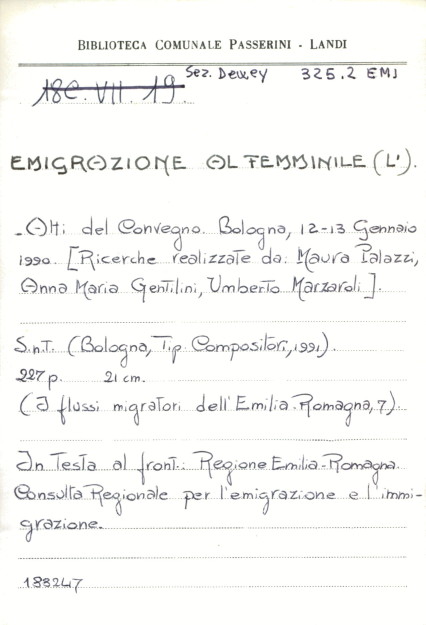 BIBLIOTECA COMUNALE PASSERINI - LANDI
18C.VII.19 Sez. Dewey 325.2 EMI
EMIGRAZIONE AL FEMMINILE (L').
- Atti del Convegno. Bologna, 12-13 Gennaio
1990. [Ricerche realizzate da: Maura Palazzi,
Anna Maria Gentilini, Umberto Marzaroli].
S.n.T. (Bologna, Tip. Compositori, 1991).
227 p. 21 cm.
(I flussi migratori dell'Emilia-Romagna, 7).
In Testa al front.: Regione Emilia-Romagna.
Consulta Regionale per l'emigrazione e l'immi-
grazione.
183247